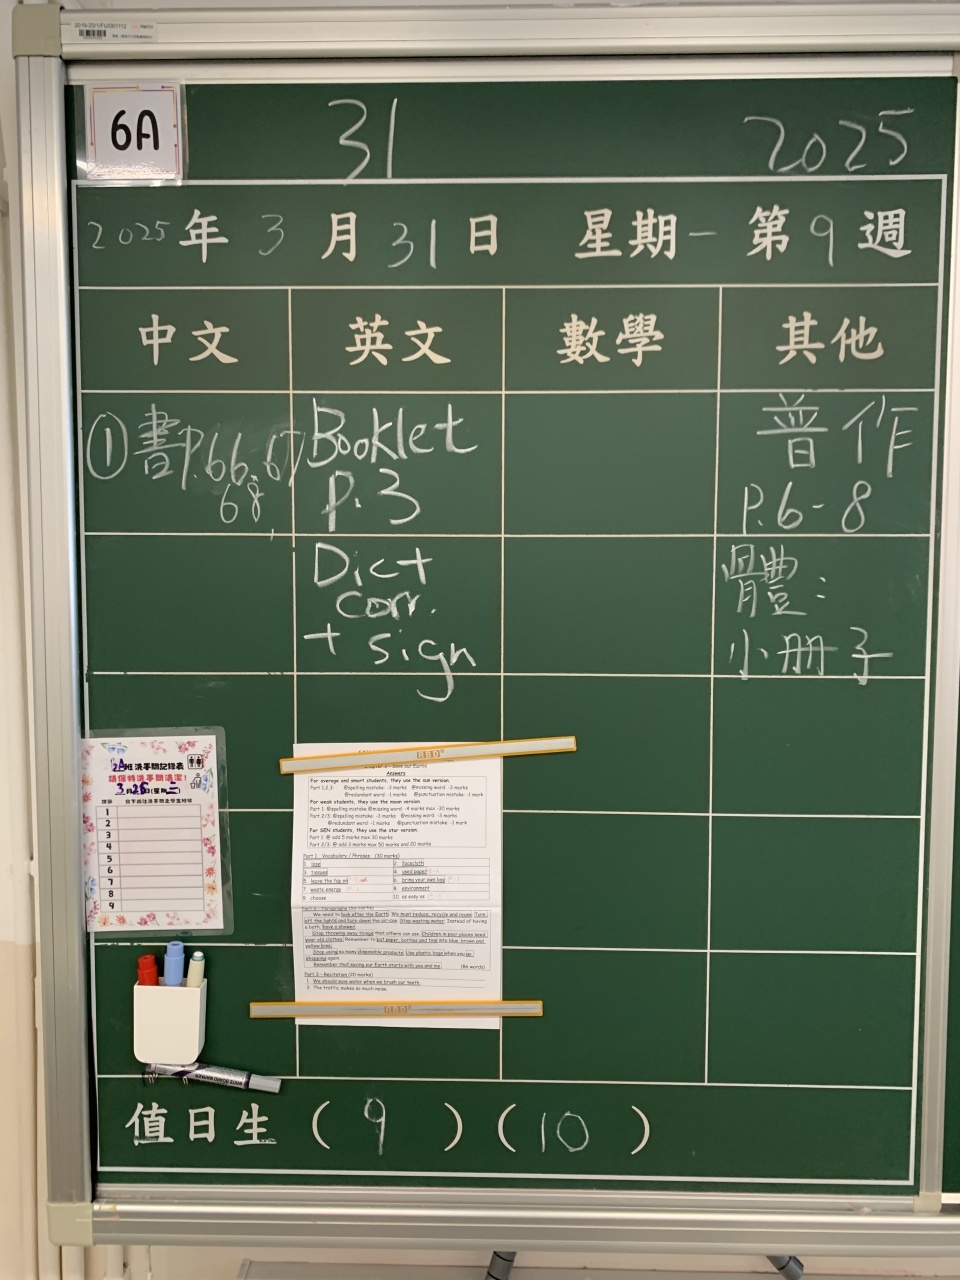 6A
31
2025
2025年3月31日 星期一 第9週
中文
英文
數學
其他
①書P.66.67
68
Booklet
P.3
普作
P.6-8
Dict
corr.
+ sign
體:
小冊子
2A班洗手間記錄表
請保持洗手間清潔!
1
2
3
4
5
6
7
8
9
RBD
Answers
For average and smart students, they use the sun version.
Part 1,2,3: @spelling mistake: -3 marks @missing word: -3 marks
@redundant word: -1 marks @punctuation mistake: -1 mark
For weak students, they use the moon version.
Part 1: @spelling mistake @missing word: -4 marks max -30 marks
Part 2/3: @spelling mistake: -3 marks @missing word: -3 marks
@redundant word: -1 marks @punctuation mistake: -1 mark
For GEN students, they use the star version.
Part 1: @ add 5 marks max 30 marks
Part 2/3: @ add 3 marks max 50 marks and 20 marks
Part 1 - Vocabulary / Phrases (30 marks)
2 facecloth
4 used paper
5 leave the tap on
6 bring your own bag
7 waste energy
8 environment
9 choose
10 as easy as
We need to look after the Earth. We must reduce, recycle and reuse. Turn
off the lights and turn down the air-con. Stop wasting water. Instead of having
a bath, have a shower.
Stop throwing away things that others can use. Children in poor places need
your old clothes. Remember to put paper, bottles and tins into blue, brown and
yellow bins.
Stop using so many disposable products. Use plastic bags when you go
shopping again.
Remember that saving our Earth starts with you and me. (86 words)
Part 3 - Recitation (20 marks)
1. We should save water when we brush our teeth.
2. The traffic makes so much noise.
RBD
值日生(9)(10)